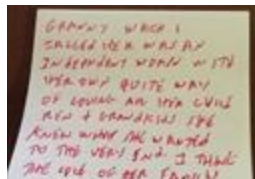 GRANNY WHICH I
CALLED HER WAS AN
INDEPENDENT WOMAN WITH
HER OWN QUITE WAY
OF LOVING ALL HER CHILD
REN & GRANDKIDS SHE
KNEW WHAT SHE WANTED
TO THE VERY END. I THINK
THE OF HER FAMILY